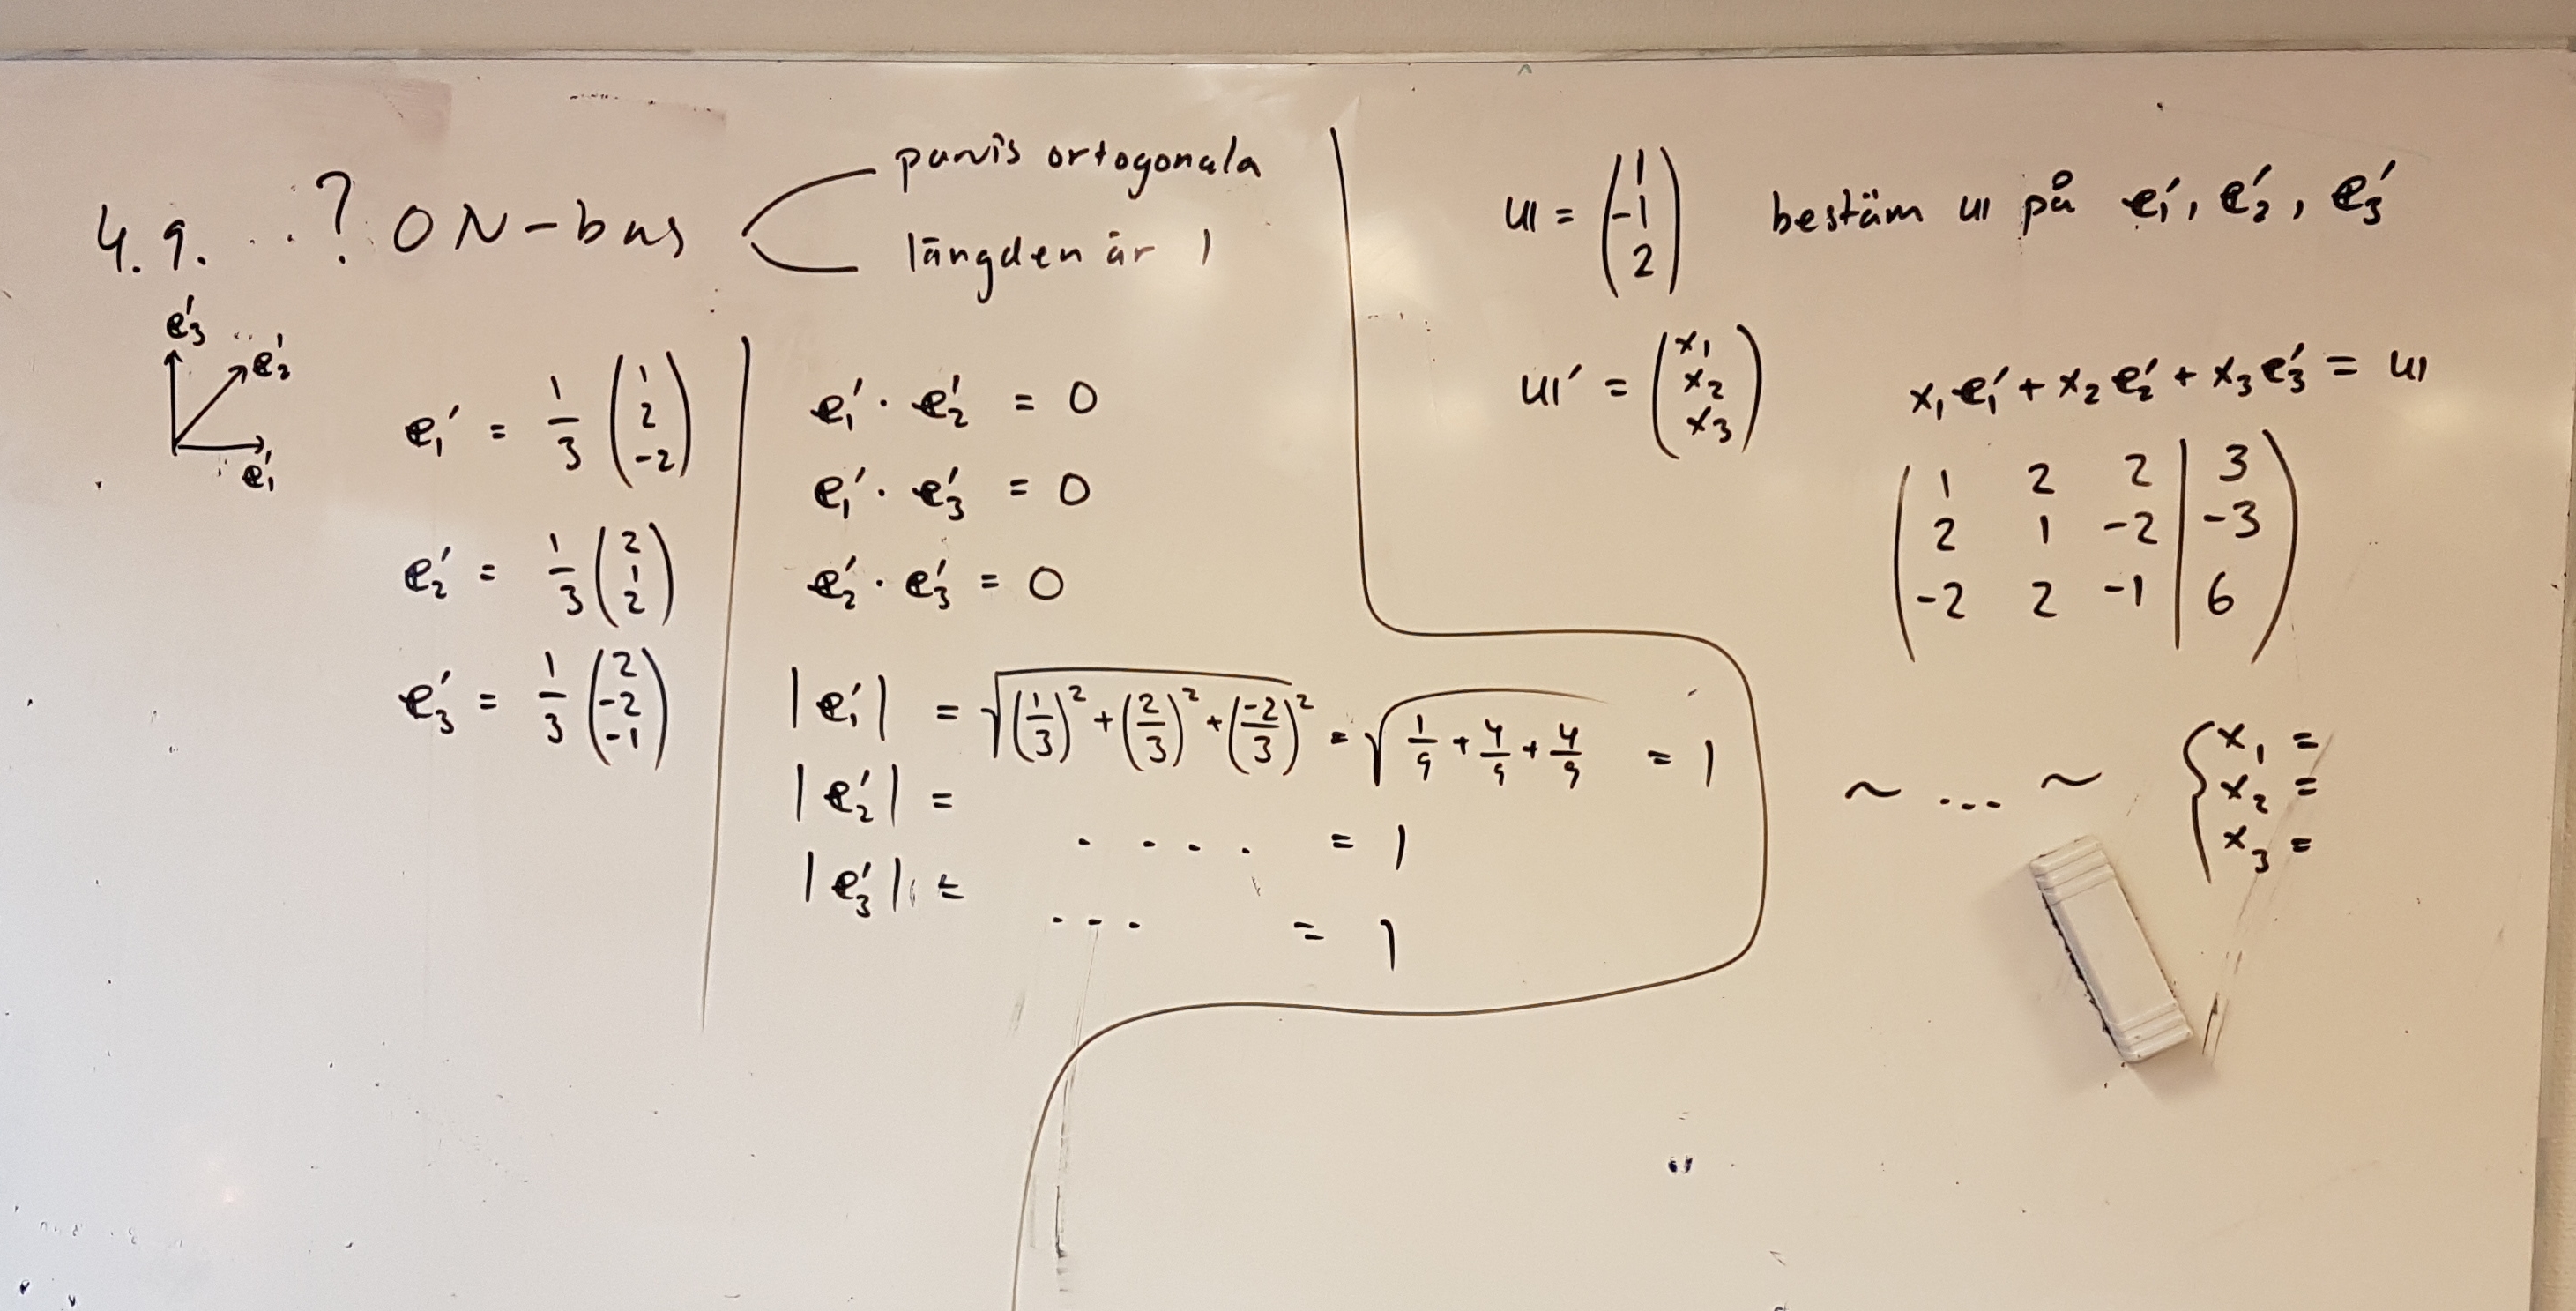 4.9. ..? ON-bas
parvis ortogonala
längden är 1
e₃′
e₂′
e₁′
e₁′ = 1/3 (1 2 -2)
e₂′ = 1/3 (2 1 2)
e₃′ = 1/3 (2 -2 -1)
e₁′ · e₂′ = 0
e₁′ · e₃′ = 0
e₂′ · e₃′ = 0
|e₁′| = √((1/3)² + (2/3)² + (-2/3)²) = √(1/9 + 4/9 + 4/9) = 1
|e₂′| = .... = 1
|e₃′| = ... = 1
u = (1 -1 2) bestäm u på e₁′, e₂′, e₃′
u′ = (x₁ x₂ x₃)
x₁e₁′ + x₂e₂′ + x₃e₃′ = u
1 2 2 | 3
2 1 -2 | -3
-2 2 -1 | 6
~ ... ~
x₁ =
x₂ =
x₃ =